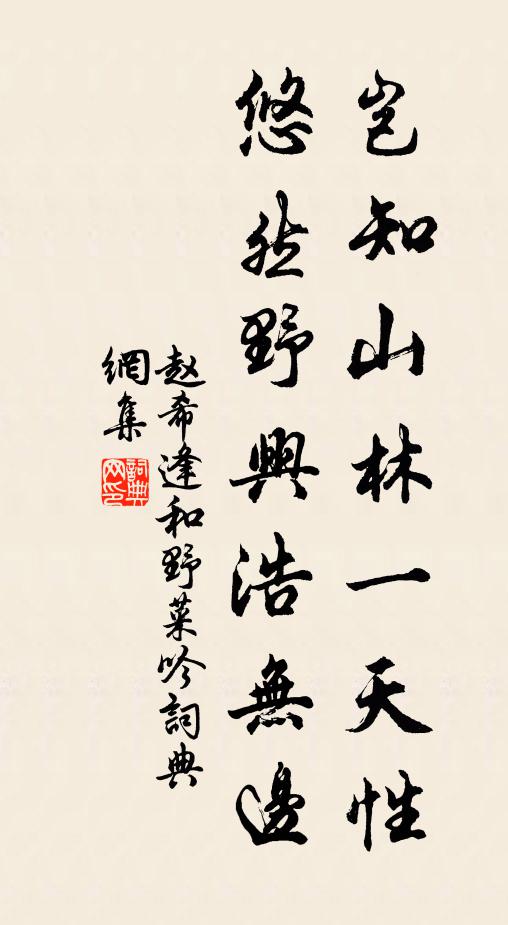 岂知山林一天性
悠然野興浩無邊
赵希逢和野菜吟詞典
網集
詞典
网印